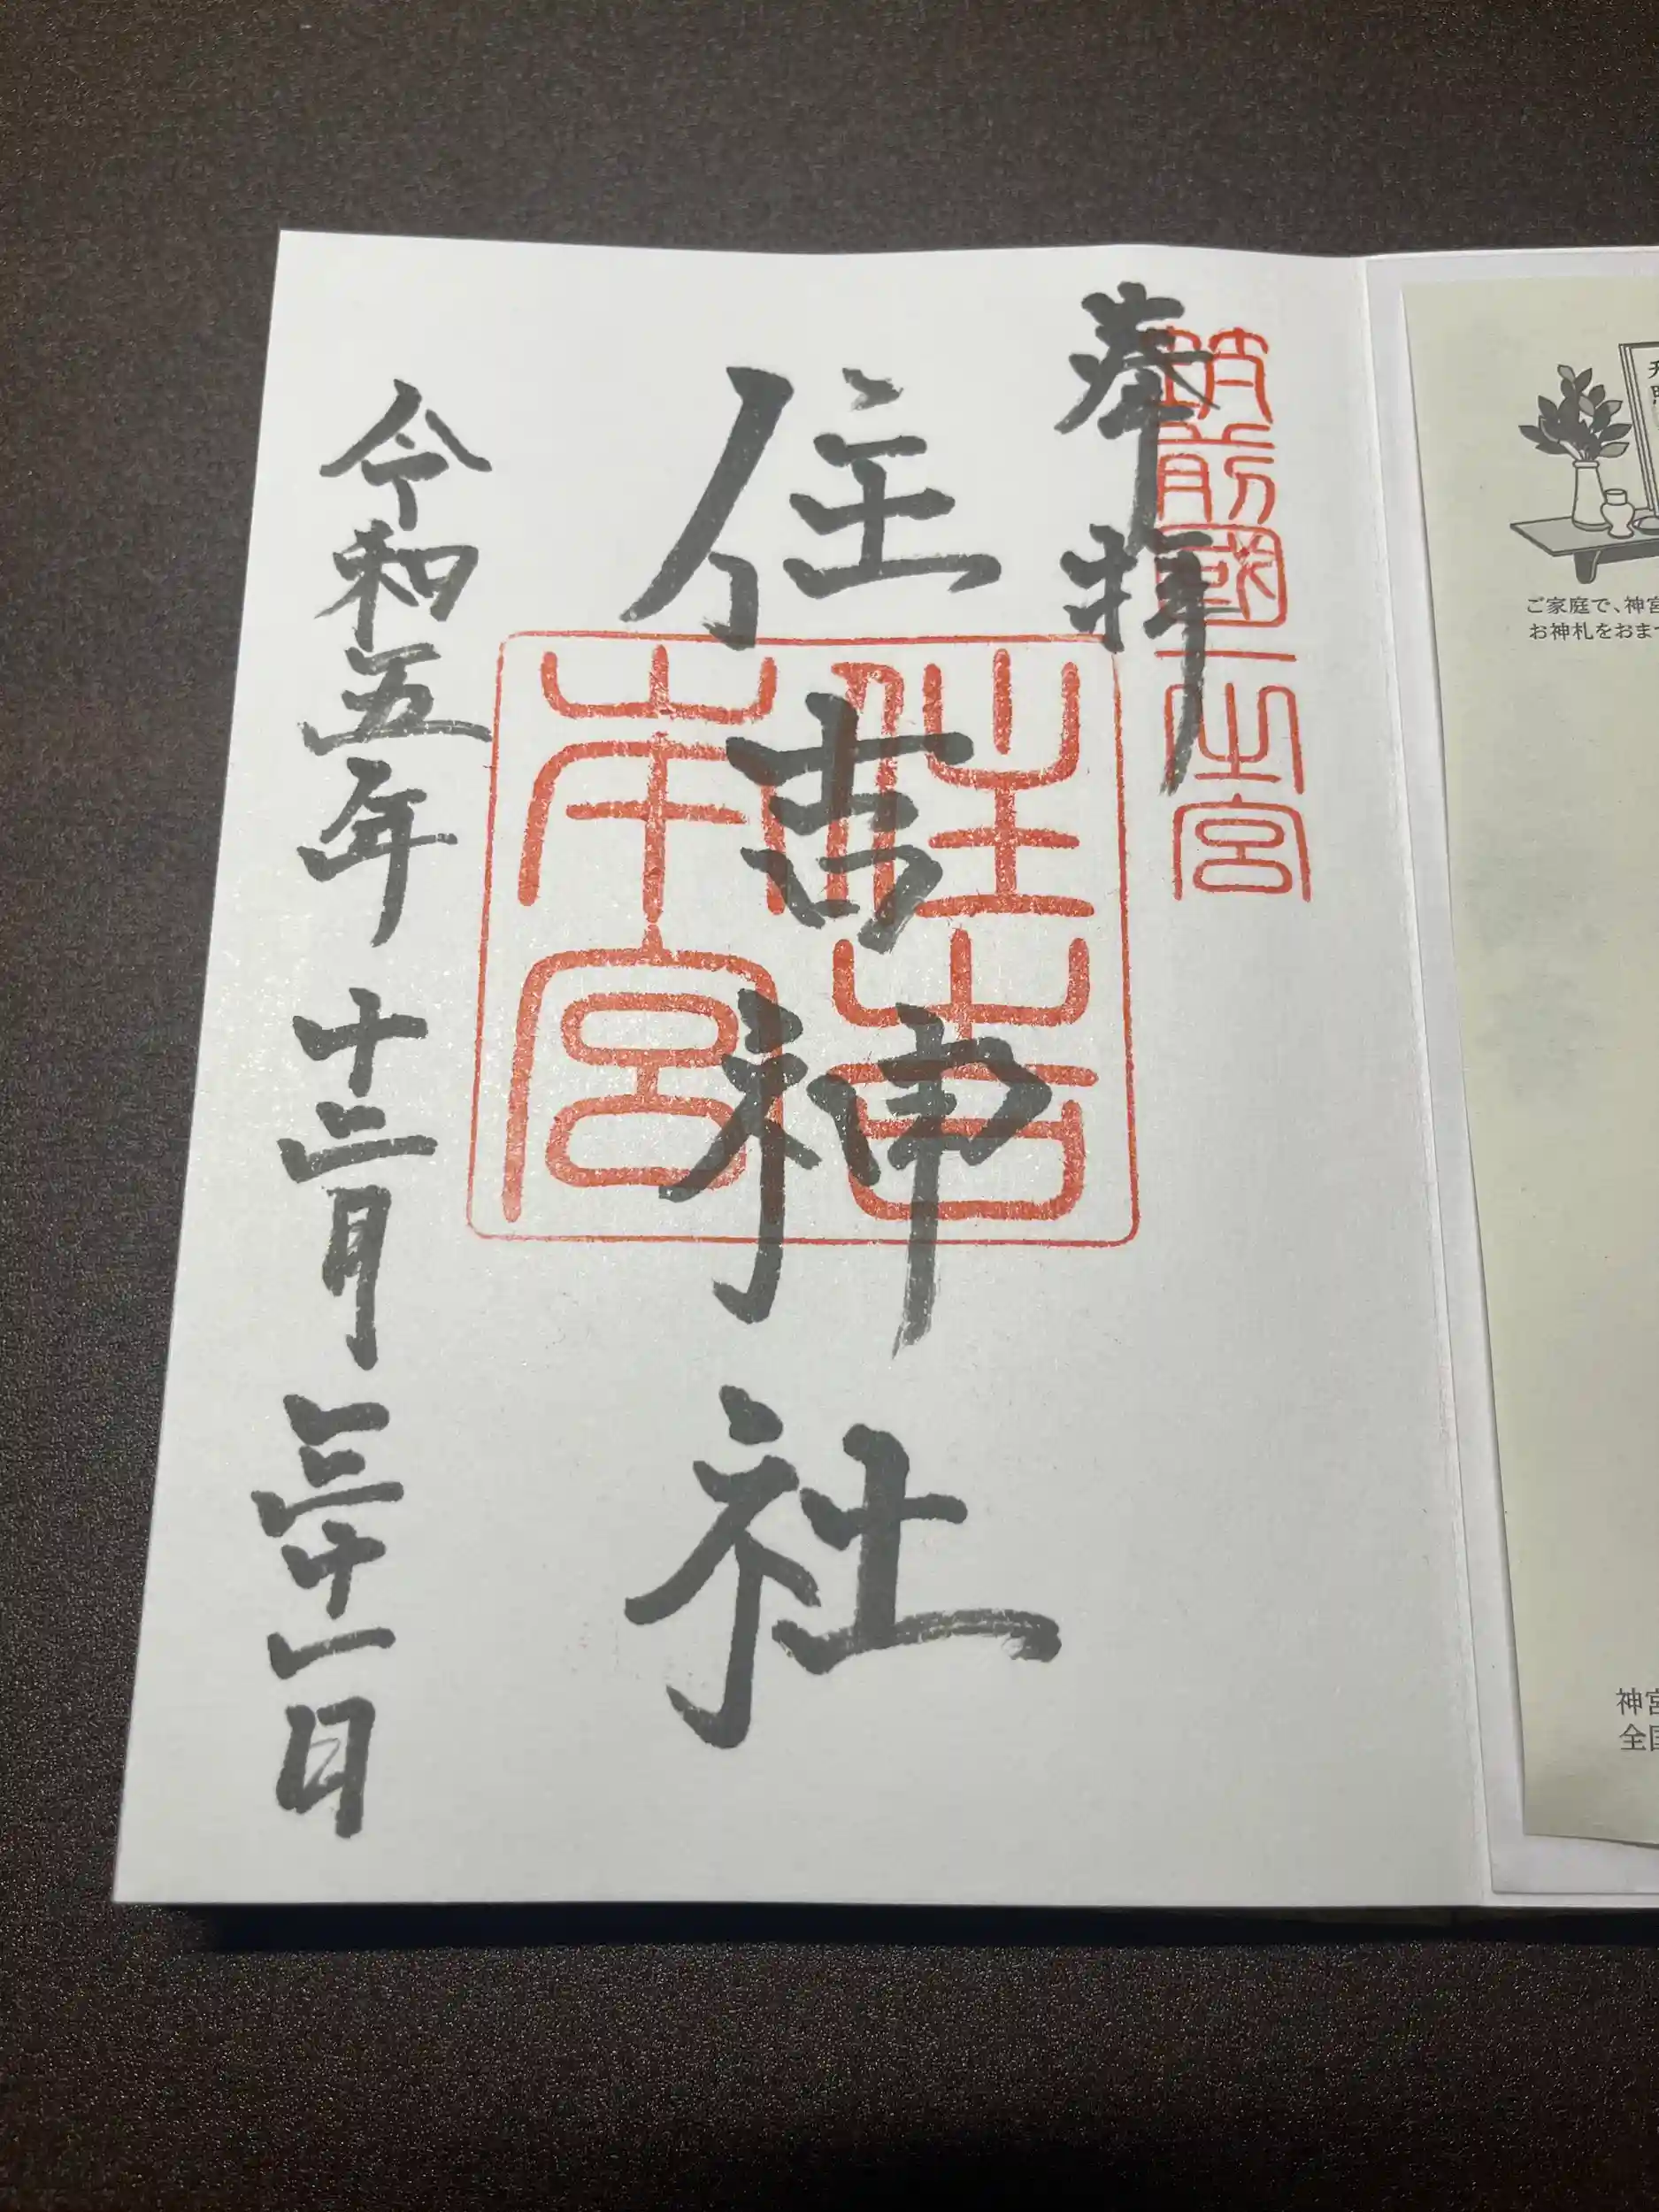 奉拝
筑前國一之宮
住吉神社
住吉本宮
令和五年十二月三十一日
ご家庭で、神宮
お神札をおま
神宮
全国